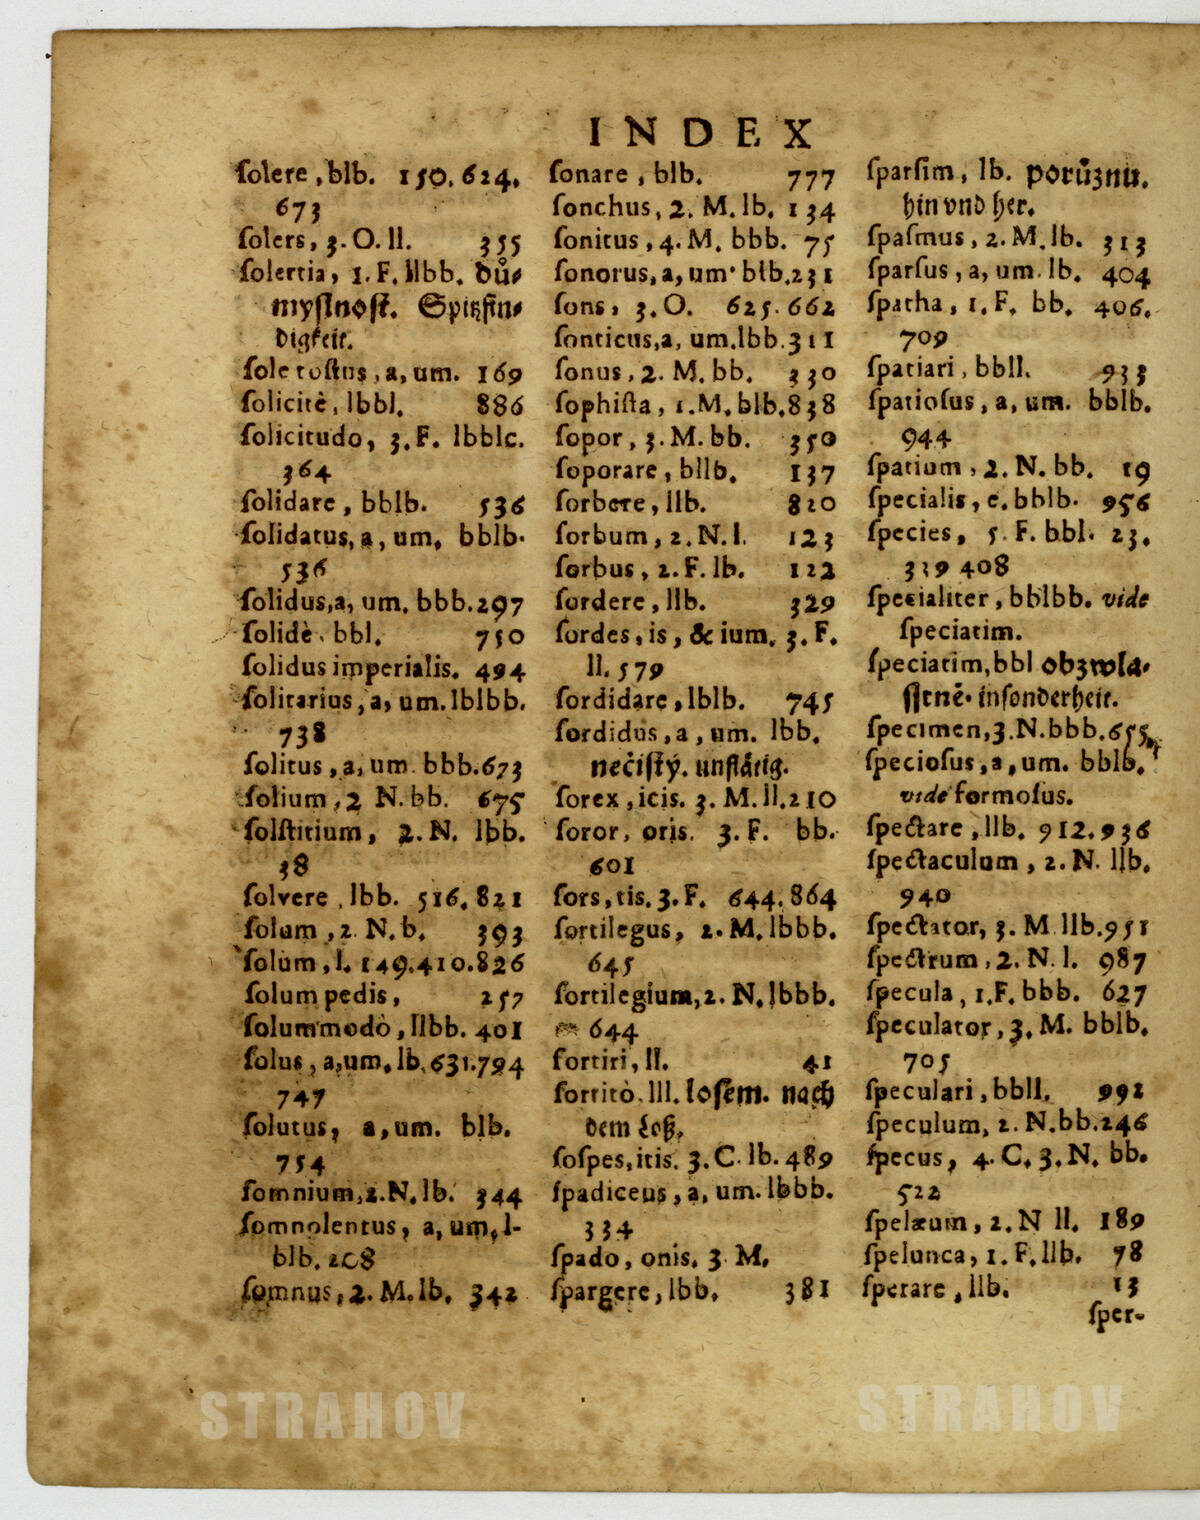 INDEX
ſolere, blb. 150. 624.
673
ſolers, 3. O. ll. 355
ſolertia, 1. F. llbb. dů⸗
myſlnoſt. Spitzfin⸗
digkeit.
ſole toſtus, a, um. 169
ſolicitè, lbbl. 886
ſolicitudo, 3. F. lbblc.
364
ſolidare, bblb. 536
ſolidatus, a, um, bblb.
536
ſolidus, a, um. bbb. 297
ſolidè. bbl. 750
ſolidus imperialis. 494
ſolitarius, a, um. lblbb.
738
ſolitus, a, um. bbb. 673
ſolium, 2 N. bb. 675
ſolſtitium, 2. N. lbb.
38
ſolvere, lbb. 516. 821
ſolum, 2. N. b. 393
ſolùm, l. 149. 410. 826
ſolum pedis, 257
ſolummodò, llbb. 401
ſolus, a, um, lb. 631. 794
747
ſolutus, a, um. blb.
754
ſomnium, 2. N. lb. 344
ſomnolentus, a, um, l-
blb. 208
ſomnus, 2. M. lb. 342
ſonare, blb. 777
ſonchus, 2. M. lb. 134
ſonitus, 4. M. bbb. 75
ſonorus, a, um. blb. 231
ſons, 3. O. 625. 662
ſonticus, a, um. lbb. 311
ſonus, 2. M. bb. 330
ſophiſta, 1. M. blb. 838
ſopor, 3. M. bb. 350
ſoporare, bllb. 137
ſorbere, llb. 820
ſorbum, 2. N. l. 123
ſorbus, 2. F. lb. 122
ſordere, llb. 329
ſordes, is, & ium. 3. F.
ll. 579
ſordidare, lblb. 745
ſordidus, a, um. lbb.
nečiſtý. unflåtig.
ſorex, icis. 3. M. ll. 210
ſoror, oris. 3. F. bb.
601
ſors, tis. 3. F. 644. 864
ſortilegus, 2. M. lbbb.
645
ſortilegium, 2. N. lbbb.
644
ſortiri, ll. 41
ſortitò. lll. loſem. nach
dem Loß.
ſoſpes, itis. 3. C. lb. 489
ſpadiceus, a, um. lbbb.
334
ſpado, onis. 3. M.
ſpargere, lbb. 381
ſparſim, lb. porůznu.
hin vnd her.
ſpaſmus, 2. M. lb. 313
ſparſus, a, um. lb. 404
ſpatha, 1. F. bb. 406.
709
ſpatiari, bbll. 933
ſpatioſus, a, um. bblb.
944
ſpatium, 2. N. bb. 19
ſpecialis, e. bblb. 956
ſpecies, 5. F. bbl. 23.
319 408
ſpecialiter, bblbb. vide
ſpeciatim.
ſpeciatim, bbl obzwla⸗
ſſtně. inſonderheit.
ſpecimen, 3. N. bbb. 655.
ſpecioſus, a, um. bblb.
vide formoſus.
ſpectare, llb. 912. 936
ſpectaculum, 2. N. llb.
940
ſpectator, 3. M. llb. 951
ſpectrum, 2. N. l. 987
ſpecula, 1. F. bbb. 627
ſpeculator, 3. M. bblb.
705
ſpeculari, bbll. 992
ſpeculum, 2. N. bb. 246
ſpecus, 4. C. 3. N. bb.
522
ſpelæum, 2. N ll. 189
ſpelunca, 1. F. llb. 78
ſperare, llb. 13
ſper-
STRAHOV STRAHOV